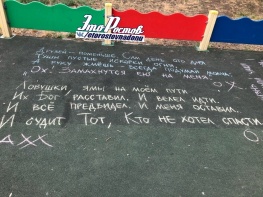 Это Ростов
/etorostovnadonu
Друзей - поменьше
день ото дня
пустые искорки огня
А руку жмёшь - всегда подумай
"Ох! Замахнутся ею на меня!"
Ловушки, ямы на моём пути
Их Бог расставил. И велел идти.
И всё предвидел. И меня оставил.
И судит Тот, Кто не хотел спасти